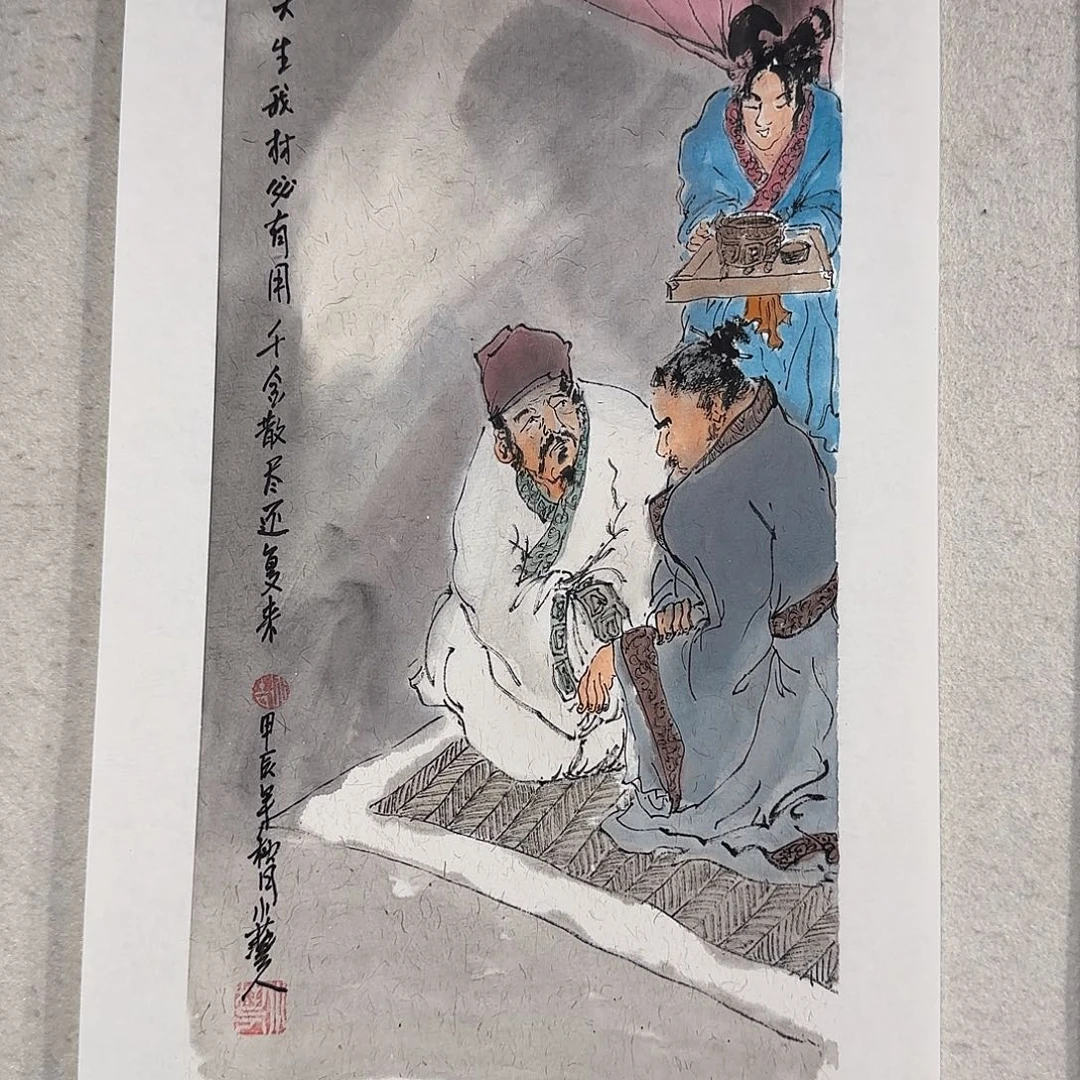 天生我材必有用 千金散尽还复来
甲辰年秋月小艺人